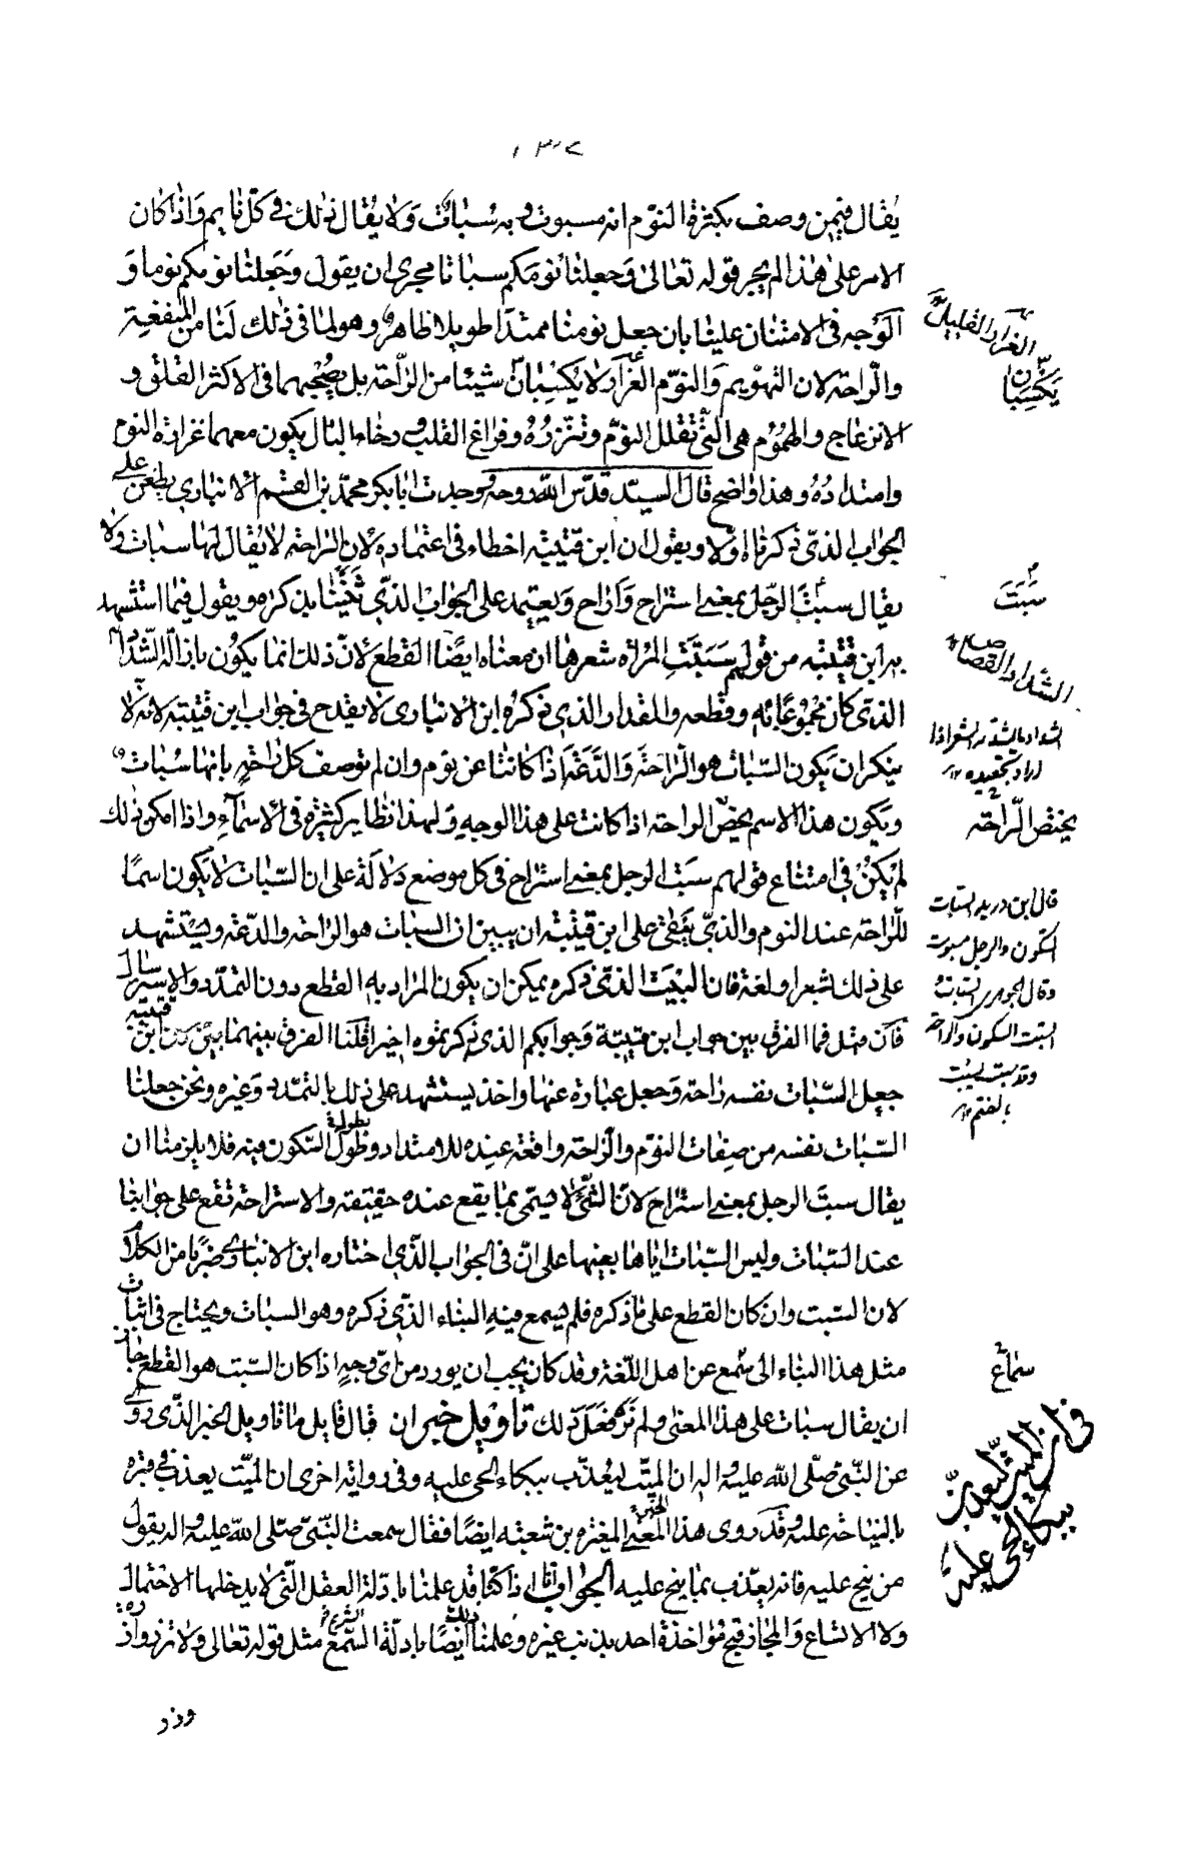 ١٣٧
يُقال فيمن وصف بكثرة النوم انه مسبوت وبه سُبات وَلا يُقال ذلك في كلّ نايم وَاذا كان
الامر على هذا لم يجر قوله تعالى وَجعلنا نومكم سباتا مجرى ان يقول وَجَعلنا نومكم نوما وَ
الوَجه في الامتنان علينا بان جعل نومنا ممتدّا طويلا ظاهر وهو لما في ذلك لَنا من المنفعة
والرّاحة لان التهويم وَالنوم الغرار لا يكسِبان شيئا من الرّاحة بل يصحبهما في الاكثر القلق و
الانزعاج والهموم هى التي تقلل النوم وتنزره وفراغ القلب ورخاء البال يكون معهما غزارة النوم
وامتداده وهذا واضح قال السيّد قدّس الله روحه وجدت ابا بكر محمّد بن القسم الانبارى يطعن على
الجواب الذى ذكرناه اوّلا ويقول ان ابن قتيبة اخطاء في اعتماده لان الراحة لا يُقال لها سبات ولا
يقال سبتَ الرّجل بمعنى استراح وَاراح وَيعتمد على الجواب الذى ثنّينا بذكره ويقول فيما استشهد
به ابن قتيبة من قولهم سَبَّتَتِ المرأة شعرها ان معناه ايضًا القطع لانّ ذلك انما يكون بازالة الشداد
الذى كان مجموعًا به وقطعه والمقدار الذى ذكره ابن الانبارى لا يقدح في جواب ابن قتيبة لانه لا
ينكر ان يكون السّبات هو الرّاحَة وَالدَّعَة اذا كانتا عن نوم وان لم توصف كلّ راحةٍ بانها سُبات
ويكون هذا الاسم يخصّ الراحة اذا كانت على هذا الوجهِ ولهذا نظاير كثيرة في الاسماءِ واذا امكن ذلك
لم يكن في امتناع قولهم سبَت الرجل بمعنى استراح في كل موضع دلالة على ان السّبات لا يكون اسمًا
للرّاحة عند النوم والذى يبقى على ابن قتيبة ان يبين ان السبات هو الراحة والدّعة ويستشهد
على ذلك بشعر او لغة فان البَيت الذى ذكره يمكن ان يكون المراد به القطع دون التمدّد والاسترسال
فان قيل فما الفرق بين جواب ابن قتيبة وَجوابكم الذى ذكرتموه اخيرا قلنا الفرق بينهما بيّن لان ابن قتيبة
جعل السّبات نفسه راحة وَجعل عبارة عنها واخذ يستشهد على ذلك بالتمدد وَغيره ونحن جعلنا
السّبات نفسه من صِفات النوم والرّاحة واقعة عنده للامتداد وطول السّكون فيه فلا يلزمنا ان
يقال سبتَ الرجل بمعنى استراح لانّ الشّئ لا يسمّى بما يقع عنده حقيقة والاستراحة تقع على جوابنا
عند السّبات وليس السّبات ايّاها بعينها على انّ في الجواب الذى اختاره ابن الانبارى ضربًا من الكلام
لان السّبت وان كان القطع على ما ذكره فلم يسمع فيهِ البناء الذى ذكره وهو السبات ويحتاج في اثبات
مثل هذا البناء الى سمع عن اهل اللّغة وقد كان يجب ان يورد من اىّ وجهٍ اذا كان السّبت هو القطع جاز
ان يقال سبات على هذا المعنى ولم نره فعل ذلك تاويل خبر ان قال قايل ما تاويل الخبر الذى روى
عن النّبىّ صلّى الله عليه واله ان الميّت ليُعذّب ببكاء الحى عليه وفى رواية اخرى ان الميّت يعذب في قبره
بالنياحة عليه وقد روى هذا المعنى المغيرة بن شعبة ايضًا فقال سمعت النّبىّ صلى الله عليه واله يقول
من نيح عليه فانه يعذّب بما نيح عليه الجواب انّا اذا كنّا قد علمنا بادلّة العقل التّى لا يدخلها الاحتمال
ولا الاتساع وَالمجاز قبح مؤاخذة احد بذنب غيره وعلمنا ايضًا بادلّة السّمع مثل قوله تعالى ولا تزر وازرة
وزر
الغرار القليل
يكسبان
سَبَتَ
الشداد القصاص
يختصّ الرّاحة
قال ابن دريد السبات
السكون والرجل مسبوت
وقال الجوهرى السبات
السبت السكون والراحة
وقد سبت يسبت
بالضم ١٢
سَماعٌ
في ان الميّت ليعذّب
ببكاء الحى عليه